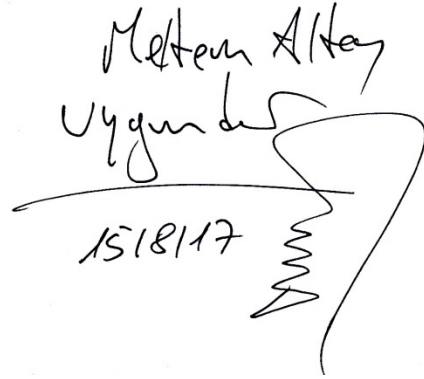 Meltem Altay
uygundur
15/8/17